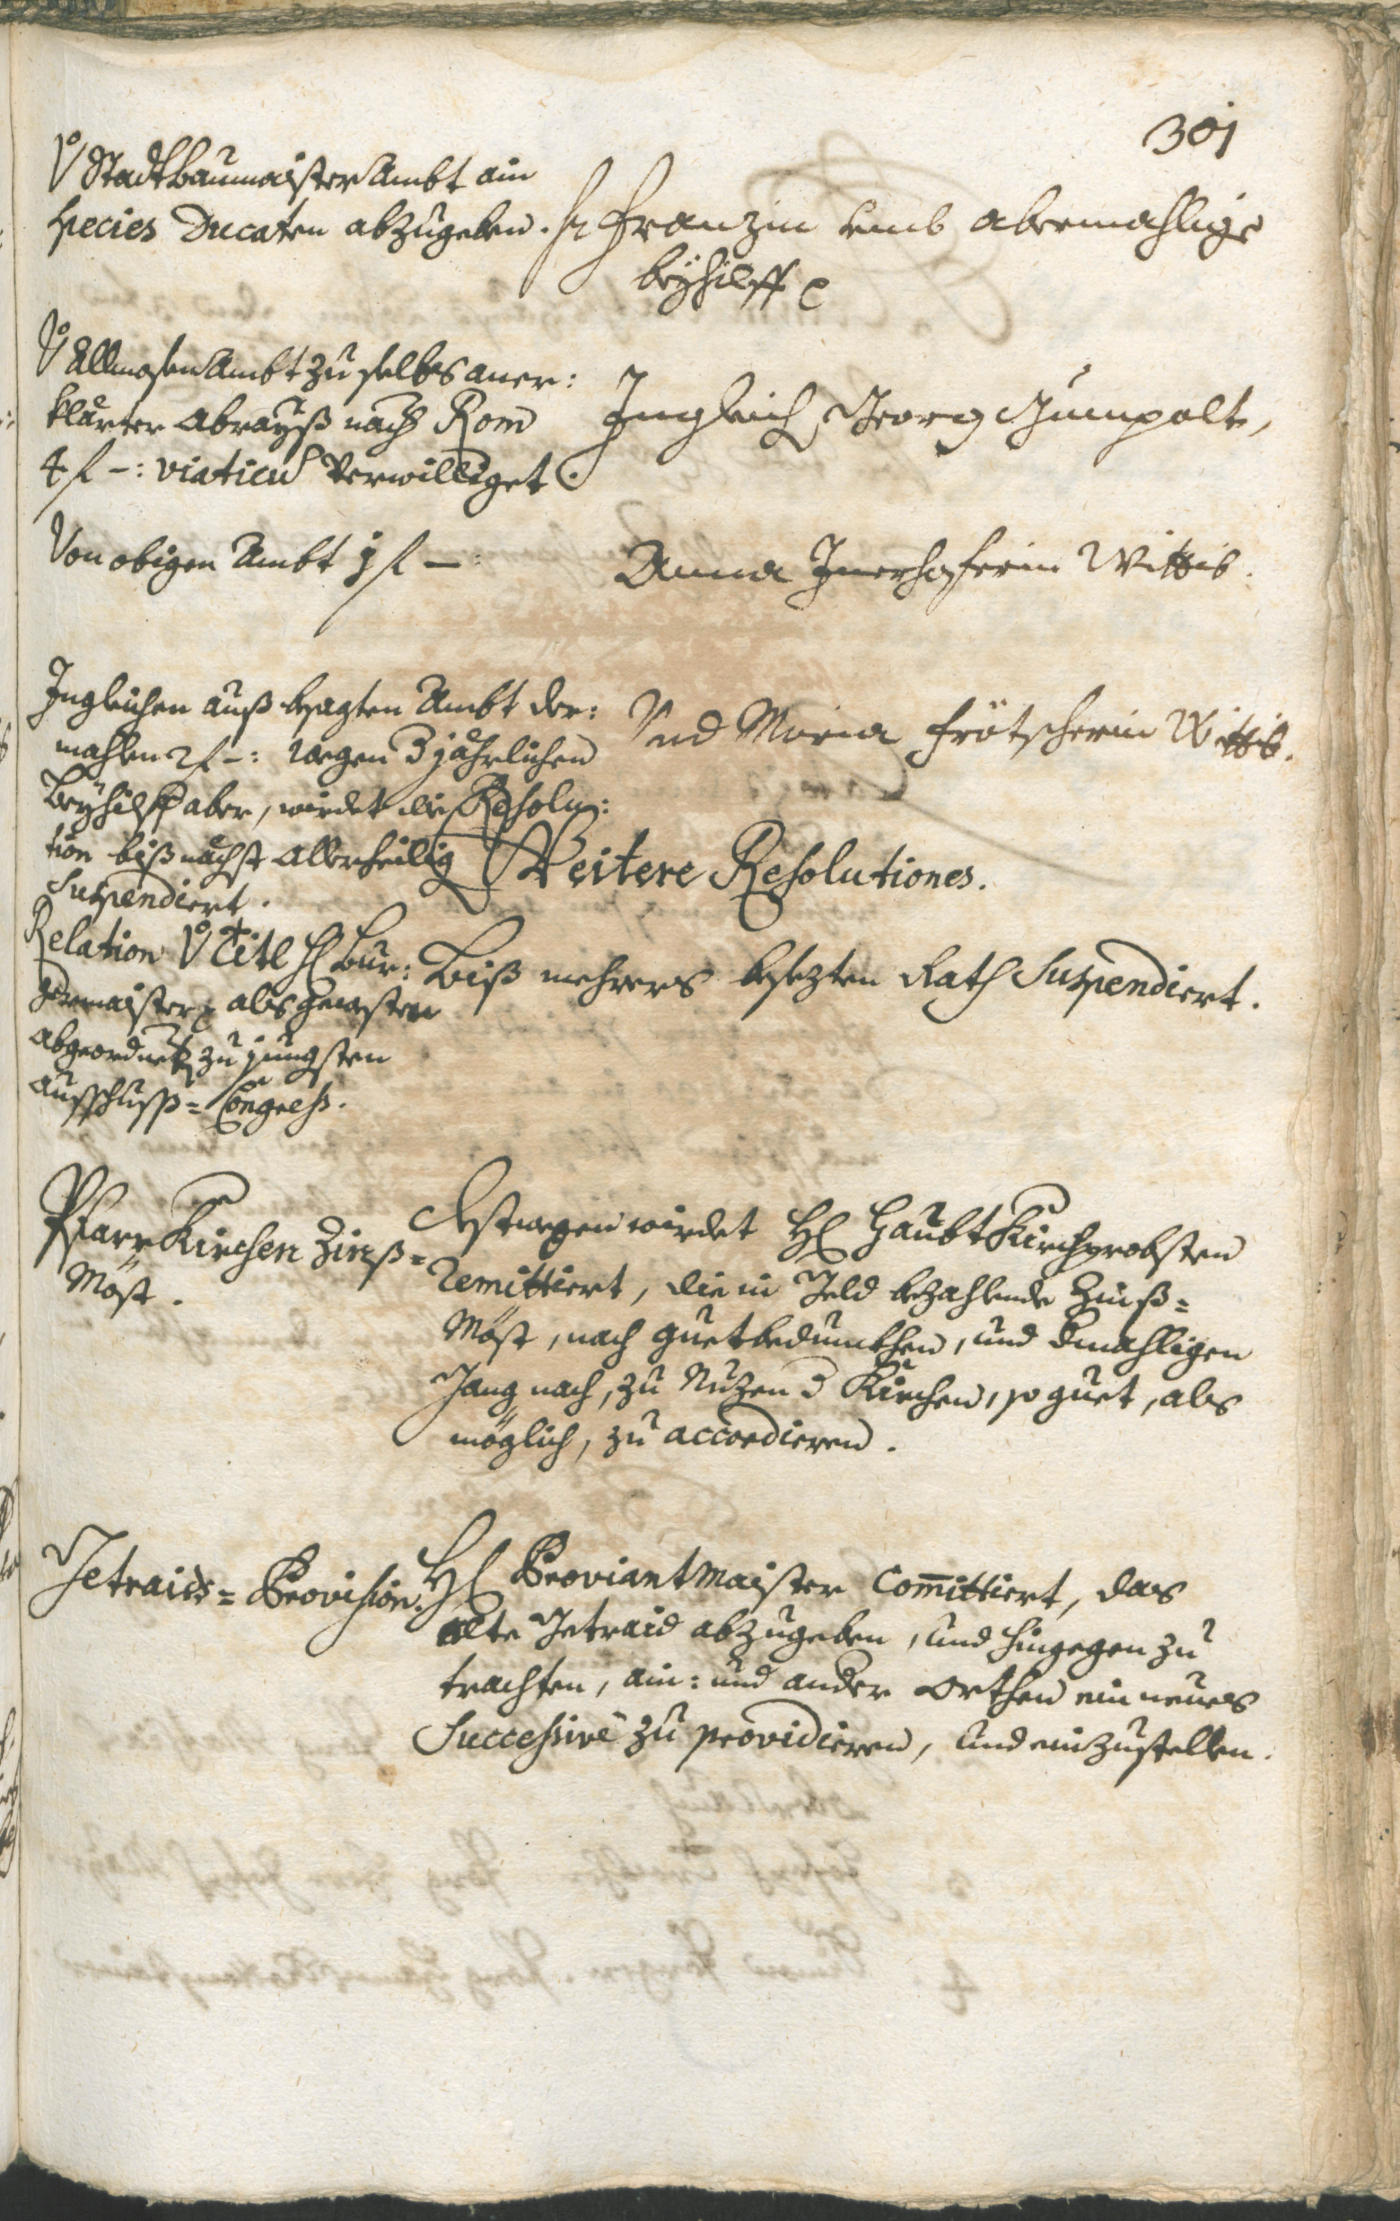 301
Vo StadtBaumaister Ambt ain
species Ducaten abzugeben.
Fr Franzin umb abermahlige
beyhilff
Vo Allmosen Ambt zu selbs aner:
klärter Abrayß nach Rom
4 f –: viaticu verwilliget.
Ingleich Georg Gumpolt,
Von obigen Ambt 1 f –:
Anna Innerhoferin Wittib.
Ingleichen auß besagten Ambt der:
mahlen 2 f –: wegen 3 jährlichen
Beyhilff aber, wirdet die Resolu:
tion biß nächst Allerheilig
Suspendiert.
Und Maria Frötscherin Wittib.
Weitere Resolutiones.
Relation Vo Titl H Bur:
germaister als gewesten
abgeordneten zu jüngsten
Ausschuss= Congress.
Biß mehrers besezten Rath Suspendiert.
PfarrKirchen Zinß=
Möst.
Destwegen wirdet H HaubtKirchprobsten
remittiert, die in Geld bezahlende Zinß=
Möst, nach guetbedunckhen, und dmahligen
Gang nach, zu Nuzen d Kirchen, so guet, als
möglich, zu accordieren.
Getraids= Provision.
H Proviantmaister Committiert, das
alte Getraid abzugeben, und hingegen zu
trachten, ain: und ander orthen ein neues
Successivè zu providieren, und einzustellen.